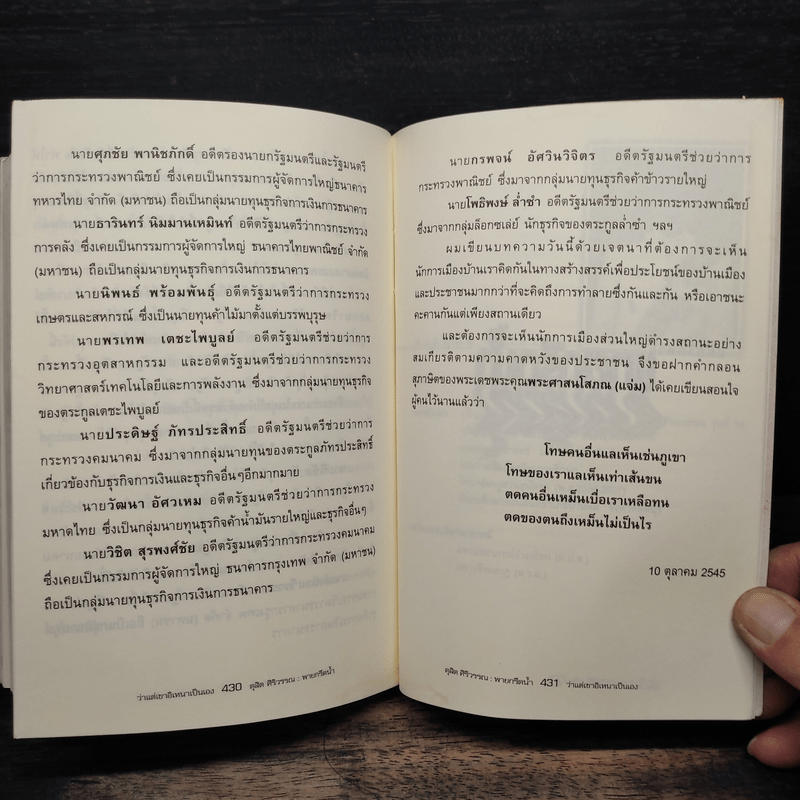 นายศุภชัย พานิชภักดิ์ อดีตรองนายกรัฐมนตรีและรัฐมนตรี
ว่าการกระทรวงพาณิชย์ ซึ่งเคยเป็นกรรมการผู้จัดการใหญ่ธนาคาร
ทหารไทย จำกัด (มหาชน) ถือเป็นกลุ่มนายทุนธุรกิจการเงินการธนาคาร
นายธารินทร์ นิมมานเหมินท์ อดีตรัฐมนตรีว่าการกระทรวง
การคลัง ซึ่งเคยเป็นกรรมการผู้จัดการใหญ่ ธนาคารไทยพาณิชย์ จำกัด
(มหาชน) ถือเป็นกลุ่มนายทุนธุรกิจการเงินการธนาคาร
นายนิพนธ์ พร้อมพันธุ์ อดีตรัฐมนตรีว่าการกระทรวง
เกษตรและสหกรณ์ ซึ่งเป็นนายทุนค้าไม้มาตั้งแต่บรรพบุรุษ
นายพรเทพ เตชะไพบูลย์ อดีตรัฐมนตรีช่วยว่าการ
กระทรวงอุตสาหกรรม และอดีตรัฐมนตรีช่วยว่าการกระทรวง
วิทยาศาสตร์เทคโนโลยีและการพลังงาน ซึ่งมาจากกลุ่มนายทุนธุรกิจ
ของตระกูลเตชะไพบูลย์
นายประดิษฐ์ ภัทรประสิทธิ์ อดีตรัฐมนตรีช่วยว่าการ
กระทรวงคมนาคม ซึ่งมาจากกลุ่มนายทุนของตระกูลภัทรประสิทธิ์
เกี่ยวข้องกับธุรกิจการเงินและธุรกิจอื่นๆอีกมากมาย
นายวัฒนา อัศวเหม อดีตรัฐมนตรีช่วยว่าการกระทรวง
มหาดไทย ซึ่งเป็นกลุ่มนายทุนธุรกิจค้าน้ำมันรายใหญ่และธุรกิจอื่นๆ
นายวิชิต สุรพงศ์ชัย อดีตรัฐมนตรีว่าการกระทรวงคมนาคม
ซึ่งเคยเป็นกรรมการผู้จัดการใหญ่ ธนาคารกรุงเทพ จำกัด (มหาชน)
ถือเป็นกลุ่มนายทุนธุรกิจการเงินการธนาคาร
ว่าแต่เขาอิเหนาเป็นเอง 430 ดุสิต ศิริวรรณ : พายกรีดน้ำ
นายกรพจน์ อัศวินวิจิตร อดีตรัฐมนตรีช่วยว่าการ
กระทรวงพาณิชย์ ซึ่งมาจากกลุ่มนายทุนธุรกิจค้าข้าวรายใหญ่
นายโพธิพงษ์ ล่ำซำ อดีตรัฐมนตรีช่วยว่าการกระทรวงพาณิชย์
ซึ่งมาจากกลุ่มล็อกซเล่ย์ นักธุรกิจของตระกูลล่ำซำ ฯลฯ
ผมเขียนบทความวันนี้ด้วยเจตนาที่ต้องการจะเห็น
นักการเมืองบ้านเราคิดกันในทางสร้างสรรค์เพื่อประโยชน์ของบ้านเมือง
และประชาชนมากกว่าที่จะคิดถึงการทำลายซึ่งกันและกัน หรือเอาชนะ
คะคานกันแต่เพียงสถานเดียว
และต้องการจะเห็นนักการเมืองส่วนใหญ่ดำรงสถานะอย่าง
สมเกียรติตามความคาดหวังของประชาชน จึงขอฝากคำกลอน
สุภาษิตของพระเดชพระคุณพระศาสนโสภณ (แจ่ม) ได้เคยเขียนสอนใจ
ผู้คนไว้นานแล้วว่า
โทษคนอื่นแลเห็นเช่นภูเขา
โทษของเราแลเห็นเท่าเส้นขน
ตดคนอื่นเหม็นเบื่อเราเหลือทน
ตดของตนถึงเหม็นไม่เป็นไร
10 ตุลาคม 2545
ดุสิต ศิริวรรณ : พายกรีดน้ำ 431 ว่าแต่เขาอิเหนาเป็นเอง